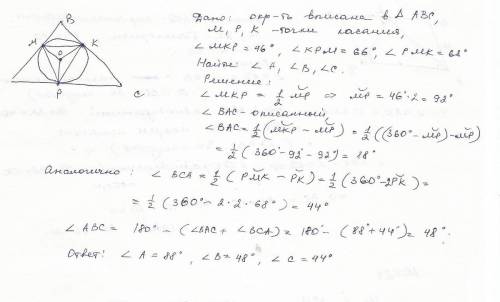 B
M
K
O
P
C
Дано: окр-ть вписана в Δ ABC,
M, P, K - точки касания,
∠MKP = 46°, ∠KPM = 66°, ∠PMK = 68°
Найти ∠A, ∠B, ∠C.
Решение:
∠MKP = 1/2 M͝P ⇒ M͝P = 46°·2 = 92°
∠BAC - описанный
∠BAC = 1/2 (M͝KP - M͝P) = 1/2 ((360° - M͝P) - M͝P)
= 1/2 (360° - 92° - 92°) = 88°
Аналогично: ∠BCA = 1/2 (P͝MK - P͝K) = 1/2 (360° - 2P͝K) =
= 1/2 (360° - 2·2·68°) = 44°
∠ABC = 180° - (∠BAC + ∠BCA) = 180° - (88° + 44°) = 48°.
Ответ: ∠A = 88°, ∠B = 48°, ∠C = 44°